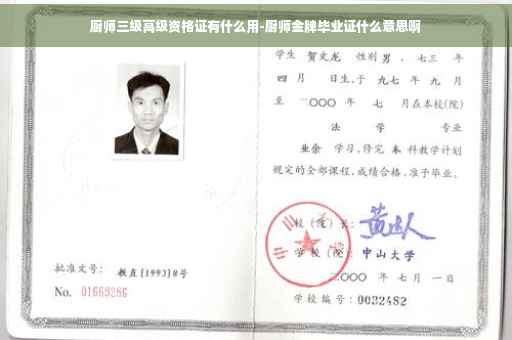 厨师三级高级资格证有什么用-厨师金牌毕业证什么意思啊
学生 贺文龙 性别 男 、七三 年
四 月 日生,于 九七 年 九 月
至 二〇〇〇 年 七 月在本校(院)
法 学 专业
业余 学习,修完 本 科教学计划
规定的全部课程,成绩合格,准予毕业。
校(院)长:
学 校(院): 中山大学
二〇〇〇 年 七 月 一 日
学校编号: 0032482
批准文号: 教直[1993]8号
No. 01669286